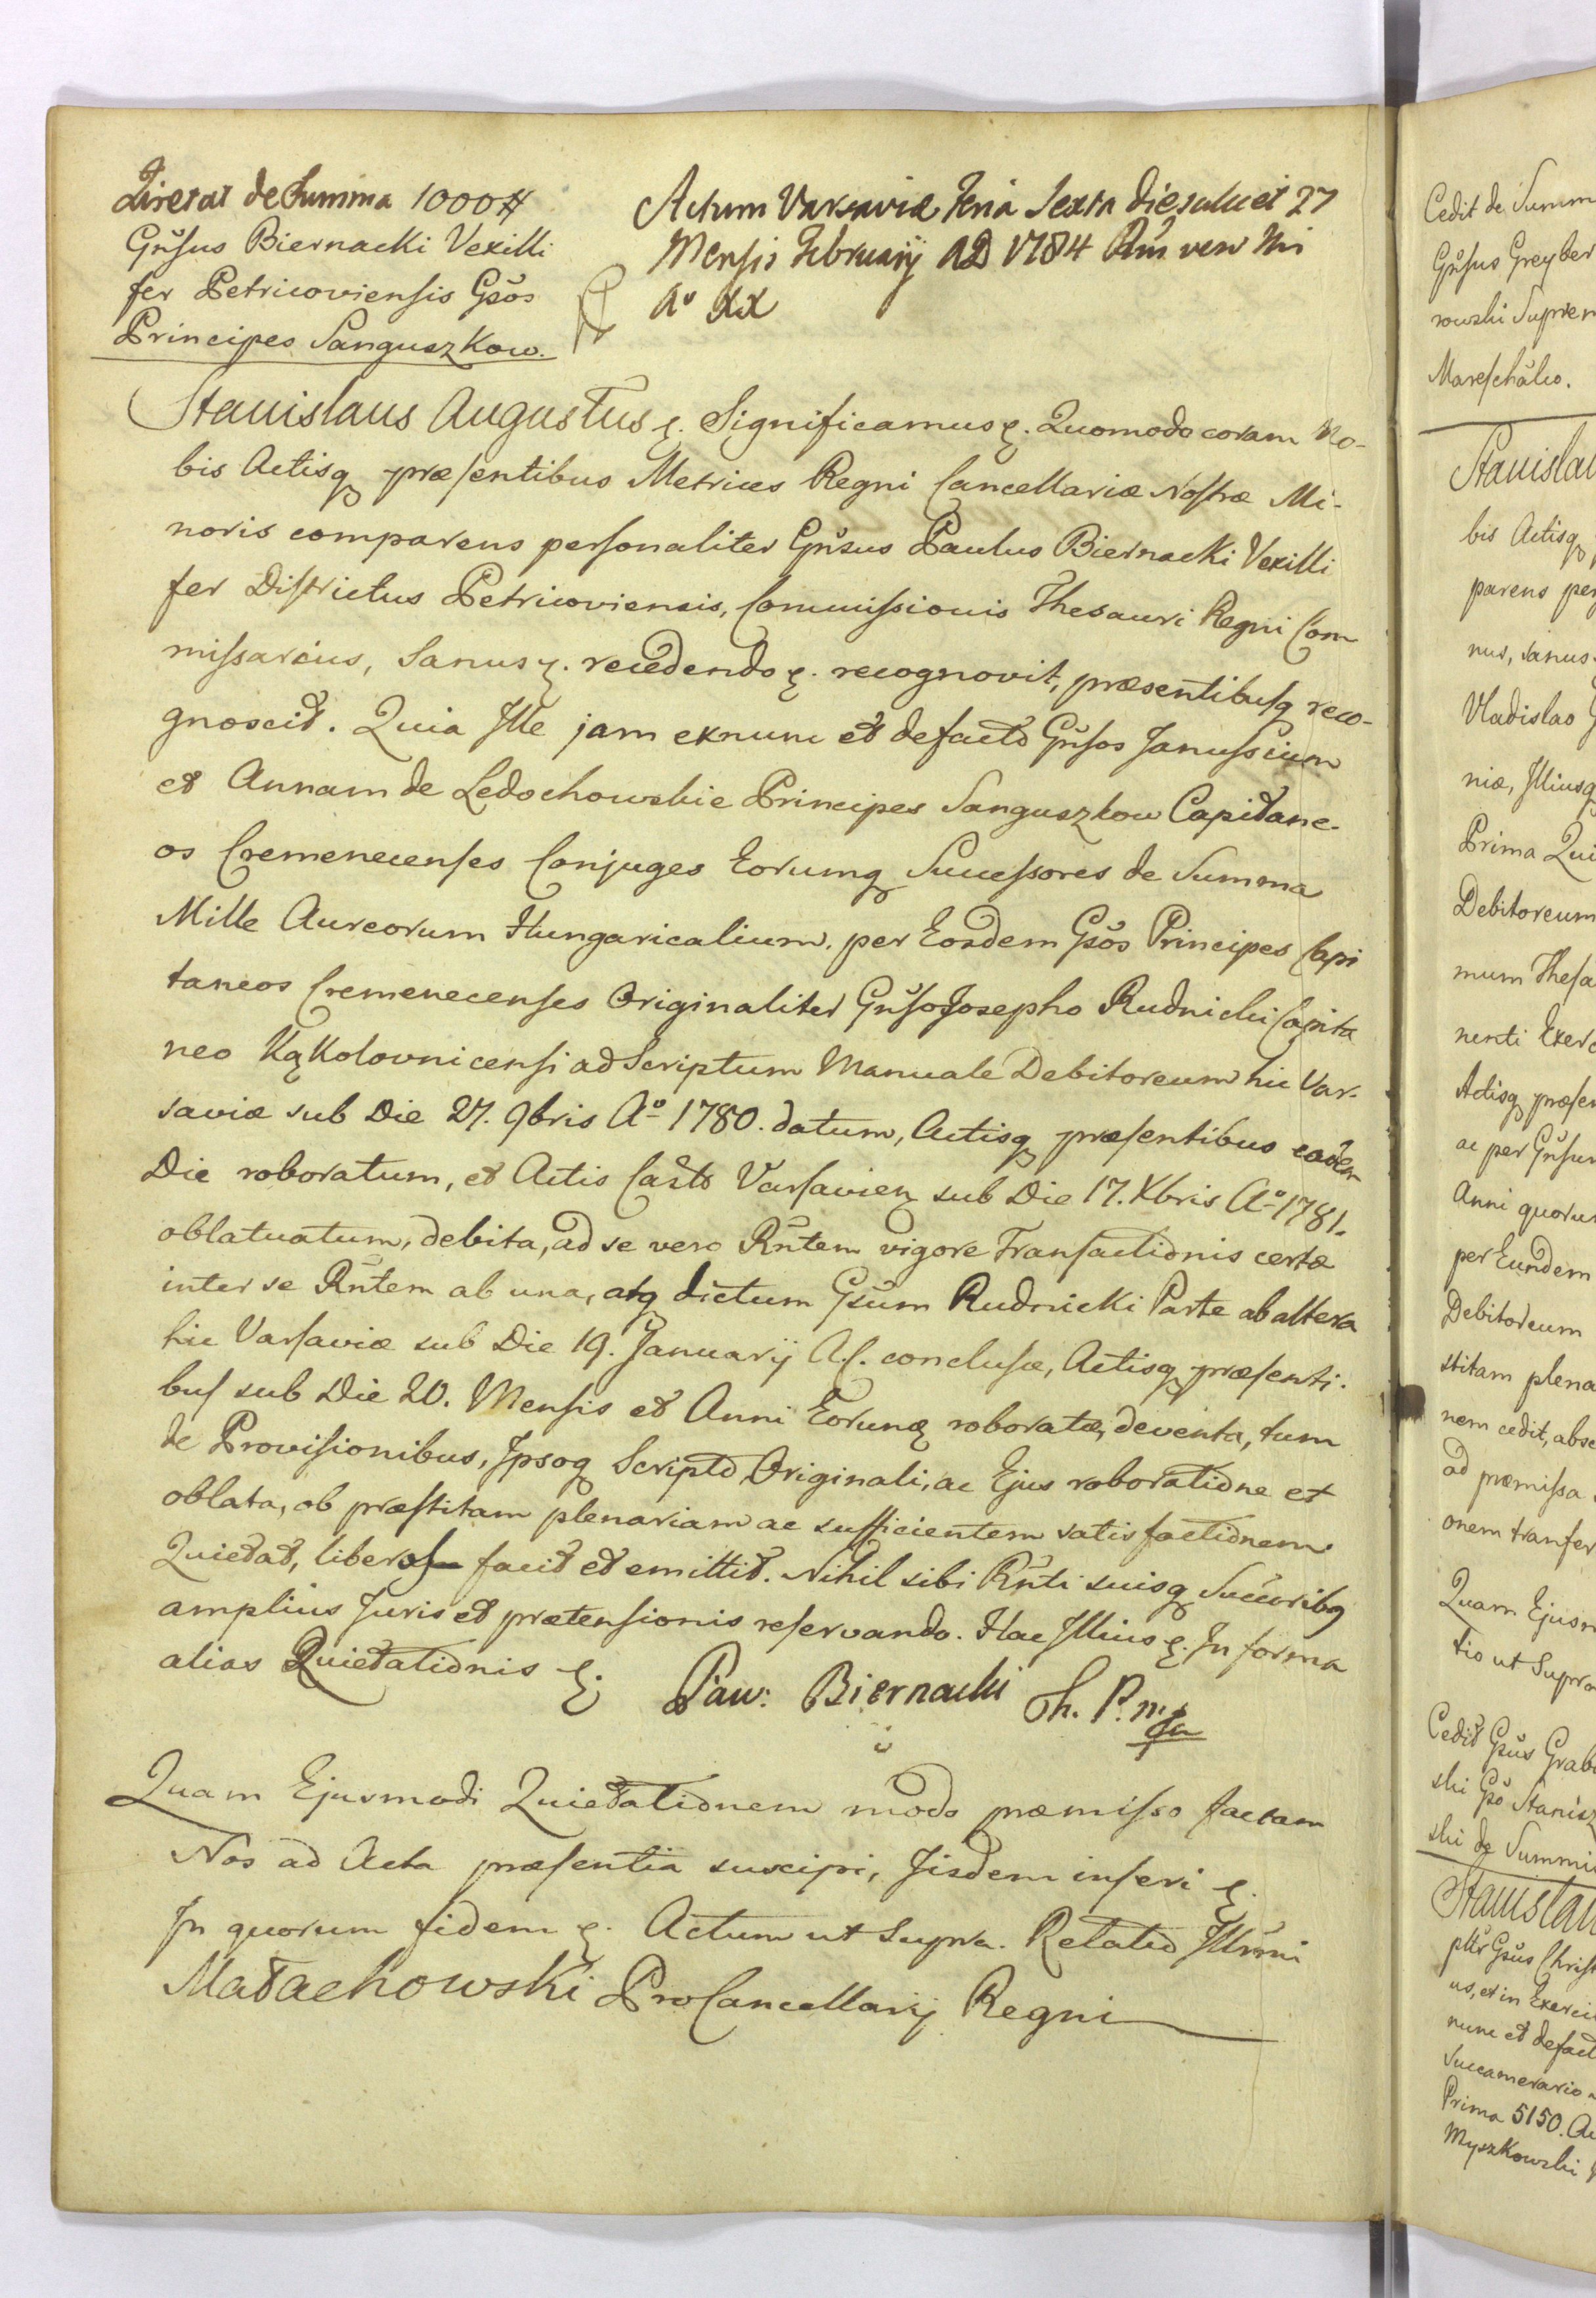 Quietat de Summa 1000 #
Gnr̃sus Biernacki Vexilli
fer Petricoviensis Gsõs
Principes Sanguszkow.
Actum Varsaviæ Feria Sexta die scilicet 27
Mensis Februarij AD 1784 Rñi vero Nri
A° XX
Stanislaus Augustus &. Significamus &. Quomodo coram No-
bis Actisq præsentibus Metrices Regni Cancellariæ Nostræ Mi-
noris comparens personaliter Gnr̃sus Paulus Biernacki Vexilli
fer Districtus Petricoviensis, Commissionis Thesauri Regni Com
missarius, Sanus &. recedendo &. recognovit, præsentibusq reco-
gnoscit. Quia Ille jam exnunc et defacto Gnr̃sos Janussium
et Annam de Ledochowskie Principes Sanguszkow Capitane-
os Cremenecenses Conjuges Eorumq Successores de Summa
Mille Aureorum Hungaricalium, per Eosdem Gsõs Principes Capi
taneos Cremenecenses Originaliter Gnr̃so Josepho Rudnicki Capita
neo Kąkolovnicensi ad Scriptum Manuale Debitoreum hic Var-
saviæ sub Die 27. 9bris A° 1780. datum, Actisq præsentibus eadem
Die roboratum, et Actis Castr̃ Varsavien sub Die 17. Xbris A° 1781.
oblatuatum, debita, ad se vero Rñtem vigore Transactionis certæ
inter se Rñtem ab una, atq dictum Gsũm Rudnicki Parte ab altera
hic Varsaviæ sub Die 19. Januarij A.c. conclusæ, Actisq præsenti-
bus sub Die 20. Mensis et Anni Eorunq roboratæ, deventa, tum
de Provisionibus, Ipsoq Scripto Originali, ac Ejus roboratione et
oblata, ob præstitam plenariam ac sufficientem satisfactionem
Quietat, liberos facit et emittit. Nihil sibi Rñti suisq Succoribq
amplius Juris et prætensionis reservando. Hac Illius &. In forma
alias Quietationis &.
Paw: Biernacki Ch. P. mp
Quam Ejusmodi Quietationem modo præmisso factam
Nos ad Acta præsentia suscipi, Iisdem inseri &.
In quorum fidem &. Actum ut Supra. Relatio Illr̃mi
Małachowski ProCancellarij Regni
Cedit de Summ
Gnr̃sus Greyber
rowski Suprem
Mareschalco.
Stanislau
bis Actisq
parens per
nus, sanus
Vladislao G
niæ, Illiusq
Prima Qui
Debitoreum
mum Thesa
nenti Exerc
Actisq præsen
ac per Gnr̃sum
Anni quorum
per Eundem
Debitoreum
stitam plena
nem cedit, abs
ad præmissa
onem transfer
Quam Ejusm
tio ut Supra
Cedit Gsũs Grab
ski Gsõ Stanisz
ski de Summi
Stanislau
pltr Gsũs Christ
us, et in Exerci
nunc et defact
Succamerario
Prima 5150. Au
Myszkowski